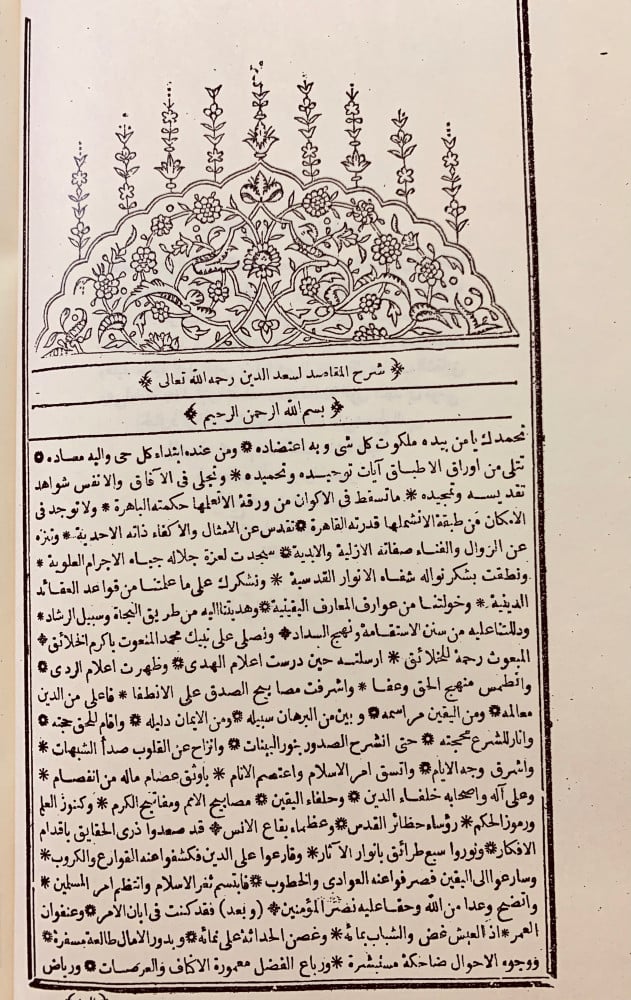 شرح المقاصد لسعد الدين رحمه الله تعالى
بسم الله الرحمن الرحيم
نحمدك يا من بيده ملكوت كل شئ وبه اعتضاده * ومن عنده ابتداء كل حى واليه معاده *
تتلى من اوراق الاطباق آيات توحيده وتحميده * وتجلى فى الآفاق والانفس شواهد
تقديسه وتمجيده * ما تسقط فى الاكوان من ورقة الا تعلمها حكمته الباهرة * ولا توجد فى
الامكان من طبقة الا تشملها قدرته القاهرة * تقدس عن الامثال والاكفاء ذاته الاحدية * وتنزه
عن الزوال والفناء صفاته الازلية والابدية * سجدت لعزة جلاله جباه الاجرام العلوية *
ونطقت بشكر نواله شفاه الانوار القدسية * ونشكرك على ما علمتنا من قواعد العقائد
الدينية * وخولتنا من عوارف المعارف اليقينية * وهديتنا اليه من طريق النجاة وسبيل الرشاد *
ودللتنا عليه من سنن الاستقامة ونهج السداد * ونصلى على نبيك محمد المنعوت باكرم الخلائق *
المبعوث رحمة للخلائق * ارسلته حين درست اعلام الهدى * وظهرت اعلام الردى *
وانطمس منهج الحق وعفا * واشرفت مصابيح الصدق على الانطفا * فاعلى من الدين
معالمه * ومن اليقين مراسمه * وبين من البرهان سبيله * ومن الايمان دليله * واقام للحق حجته *
وانار للشرع محجته * حتى انشرح الصدور بنور البينات * وانزاح عن القلوب صدأ الشبهات *
واشرق وجه الايام * واتسق امر الاسلام واعتصم الانام * باوثق عصام ماله من انفصام *
وعلى آله واصحابه خلفاء الدين * وحلفاء اليقين * مصابيح الامم ومفاتيح الكرم * وكنوز العلم
ورموز الحكم * رؤساء حظائر القدس * وعظماء بقاع الانس * قد صعدوا ذرى الحقايق باقدام
الافكار * ونوروا سبع طرائق بانوار الآثار * وقارعوا على الدين فكشفوا عنه القوارع والكروب *
وسارعوا الى اليقين فصرفوا عنه العوادى والخطوب * فابتسم ثغر الاسلام وانتظم امر المسلمين *
واتضح وعدا من الله وحقا عليه نصر المؤمنين * (وبعد) فقد كنت فى ابان الامر * وعنفوان
العمر * اذ العيش غض والشباب بمائه * وغصن الحداثة على نمائه * وبدور الامال طالعة مسفرة *
ووجوه الاحوال ضاحكة مستبشرة * ورباع الفضل معمورة الاكناف والعرصات * ورياض